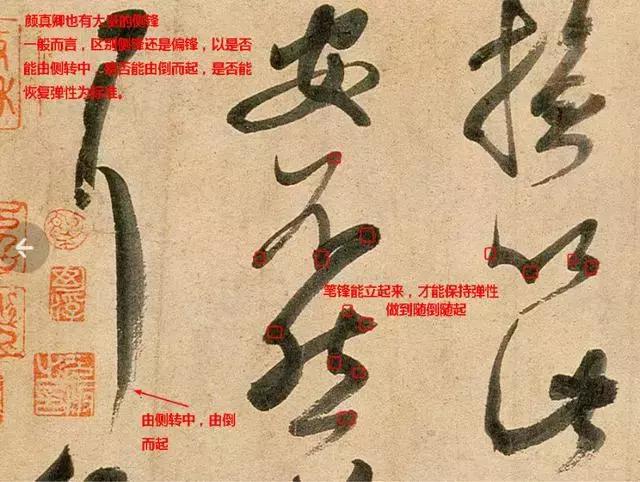 颜真卿也有大量的侧锋
一般而言，区别侧锋还是偏锋，以是否
能由侧转中，是否能由倒而起，是否能
恢复弹性为标准。
拯以此
安不然
耳
笔锋能立起来，才能保持弹性
做到随倒随起
由侧转中，由倒
而起